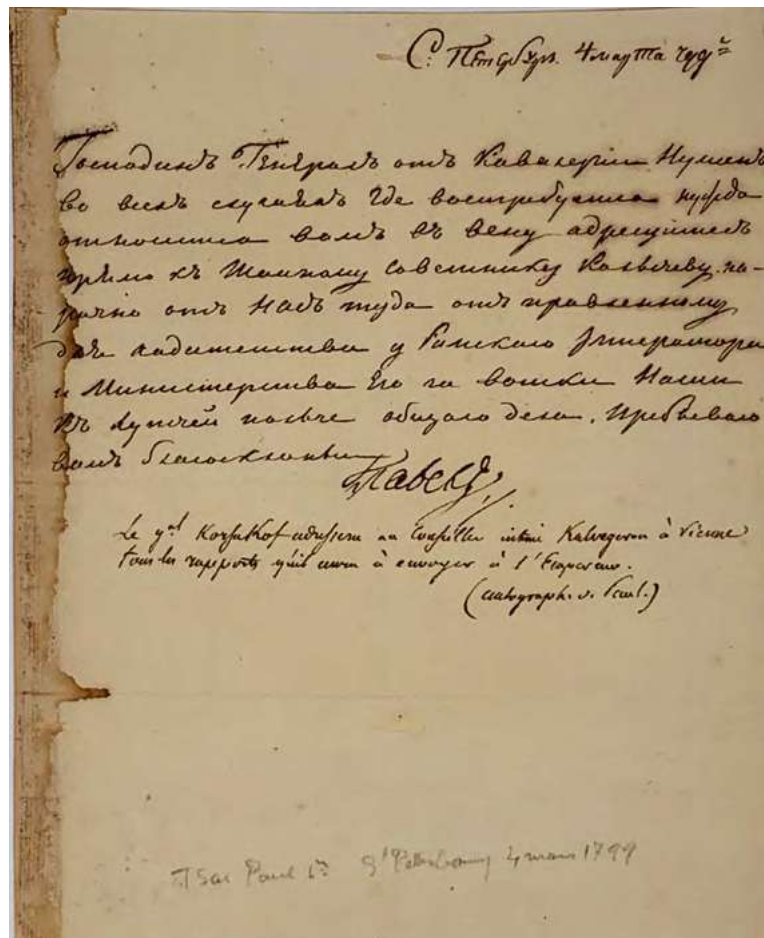 С: Петербург. 4 марта 799
Господинъ Генералъ отъ Кавалерiи Нумсенъ
во всехъ случаяхъ где востребуется нужда
относится вамъ въ вену адресуитесь
прямо къ Тайному Советнику Колычеву на-
рочно отъ насъ туда отправленному
для ходатемства у Римскаго Императора
и Министерства Его за воиски Наши
къ лутчей ползе общаго дела. Пребываю
вамъ благосклонны
Павелъ
Le gal Korsakof adressera au Conseiller intime à Vienne
tous les rapports qu'il aura à envoyer à l'Empereur.
(autograph. v. Paul.)
TSar Paul 1er St Petersbourg 4 mars 1799